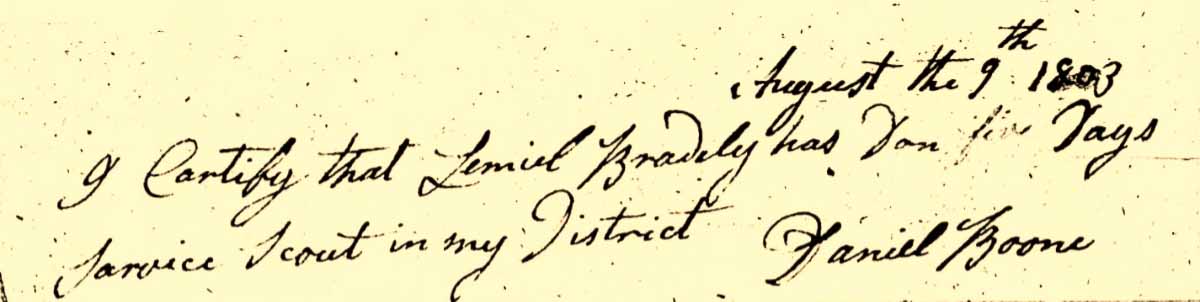 August the 9th 1803
I Cartify that Lemiel Bradely has Don five Days
sarvice Scout in my District
Daniel Boone